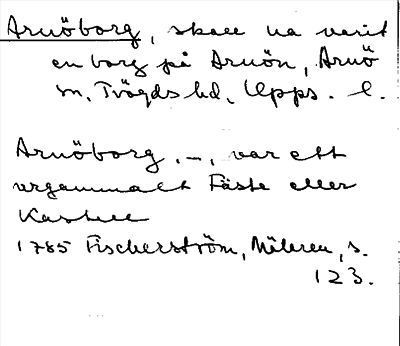 Arnöborg, skall ha varit
en borg på Arnön, Arnö
sn, Trögds hd, Upps. l.
Arnöborg, –, var ett
urgammalt Fäste eller
Kastell
1785 Fischerström, Mälaren, s.
123.